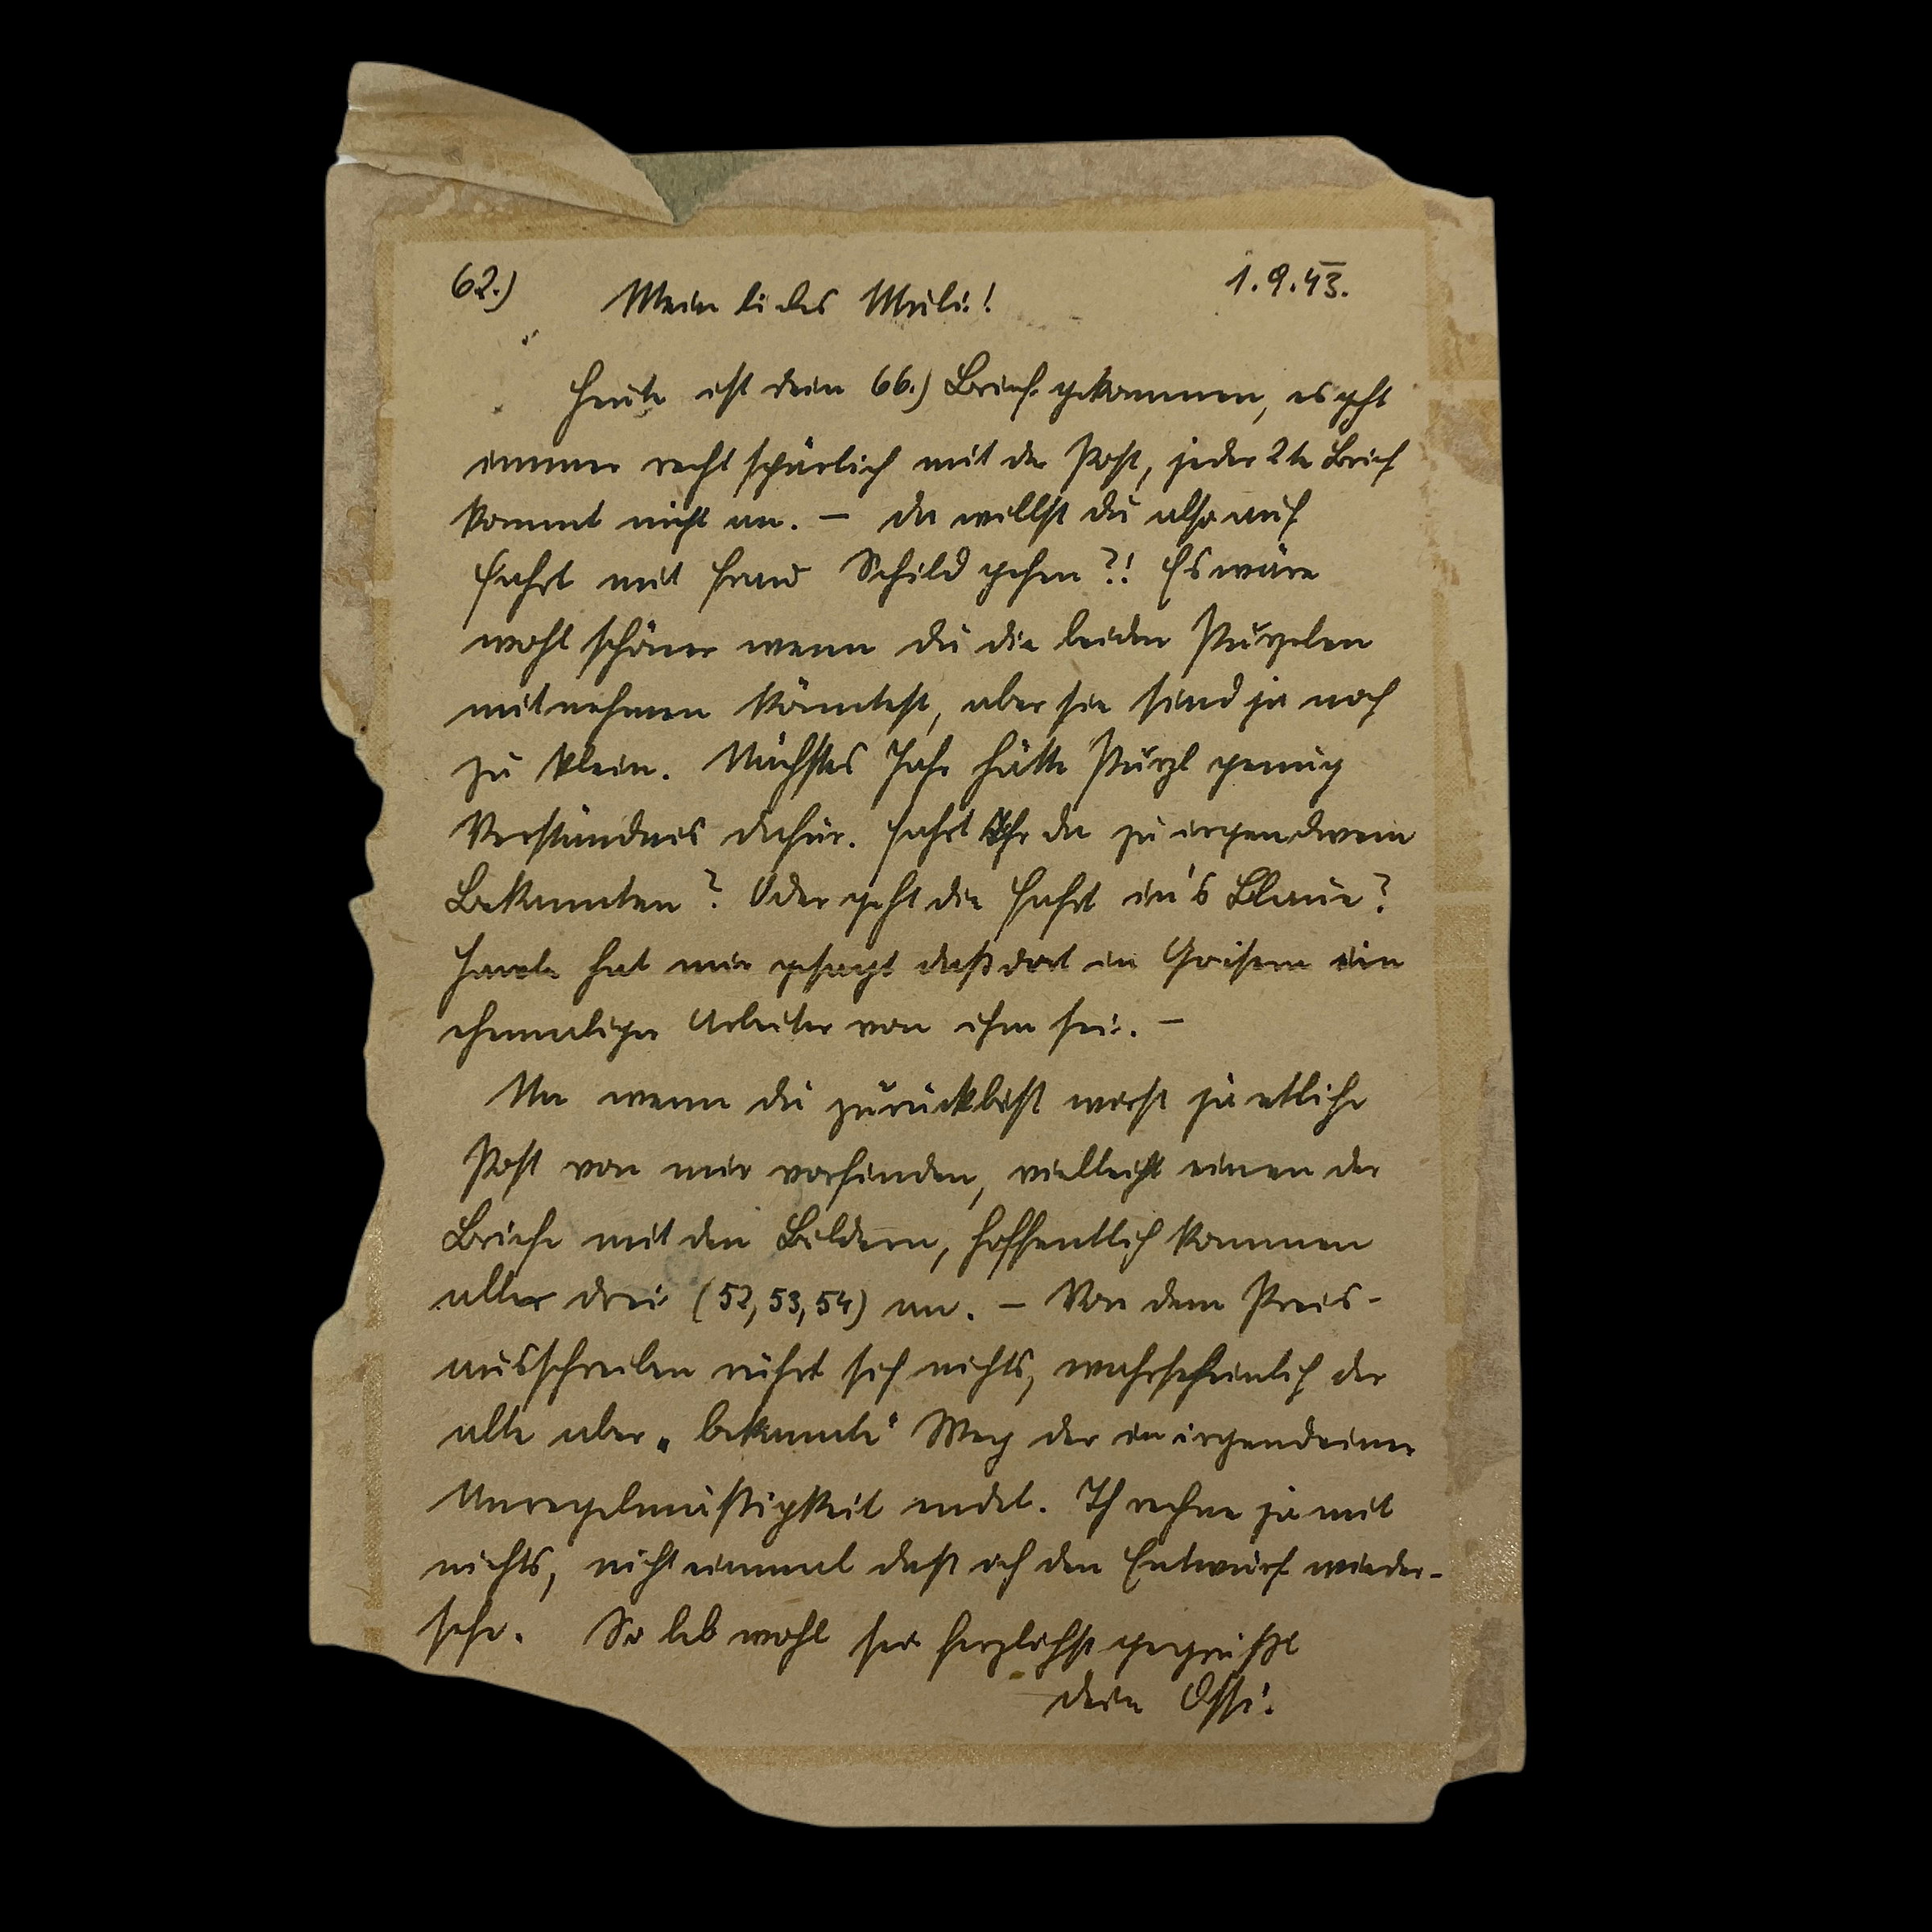 62.) Mein liebes Muli! 1.9.43.
Heute ist dein 66.) Brief gekommen, es geht
immer recht spärlich mit der Post, jeder 2te Brief
kommt nicht an. – Da willst du also auf
Fahrt mit Frau Schild gehen?! Es wäre
wohl schöner wenn du die beiden Purzelen
mitnehmen könntest, aber sie sind ja noch
zu klein. Nächstes Jahr hätte Purzl genug
Verständnis dafür. Fahrt Ihr da zu irgendwem
Bekannten? Oder geht die Fahrt in's Blaue?
hat mir gesagt daß dort in Goisern ein
ehemaliger Arbeiter von ihm sei. –
Na wenn du zurückbist wirst ja etliche
Post von mir vorfinden, vielleicht einen der
Briefe mit den Bildern, hoffentlich kommen
alle drei (52, 53, 54) an. – Von dem Preis-
ausschreiben rührt sich nichts, wahrscheinlich der
alte aber „bekannte" Weg der in irgendeiner
Unregelmäßigkeit endet. Ich rechne ja mit
nichts, nicht einmal daß ich den Entwurf wieder-
sehe. So leb wohl sei herzlichst gegrüßt
dein Ossi.